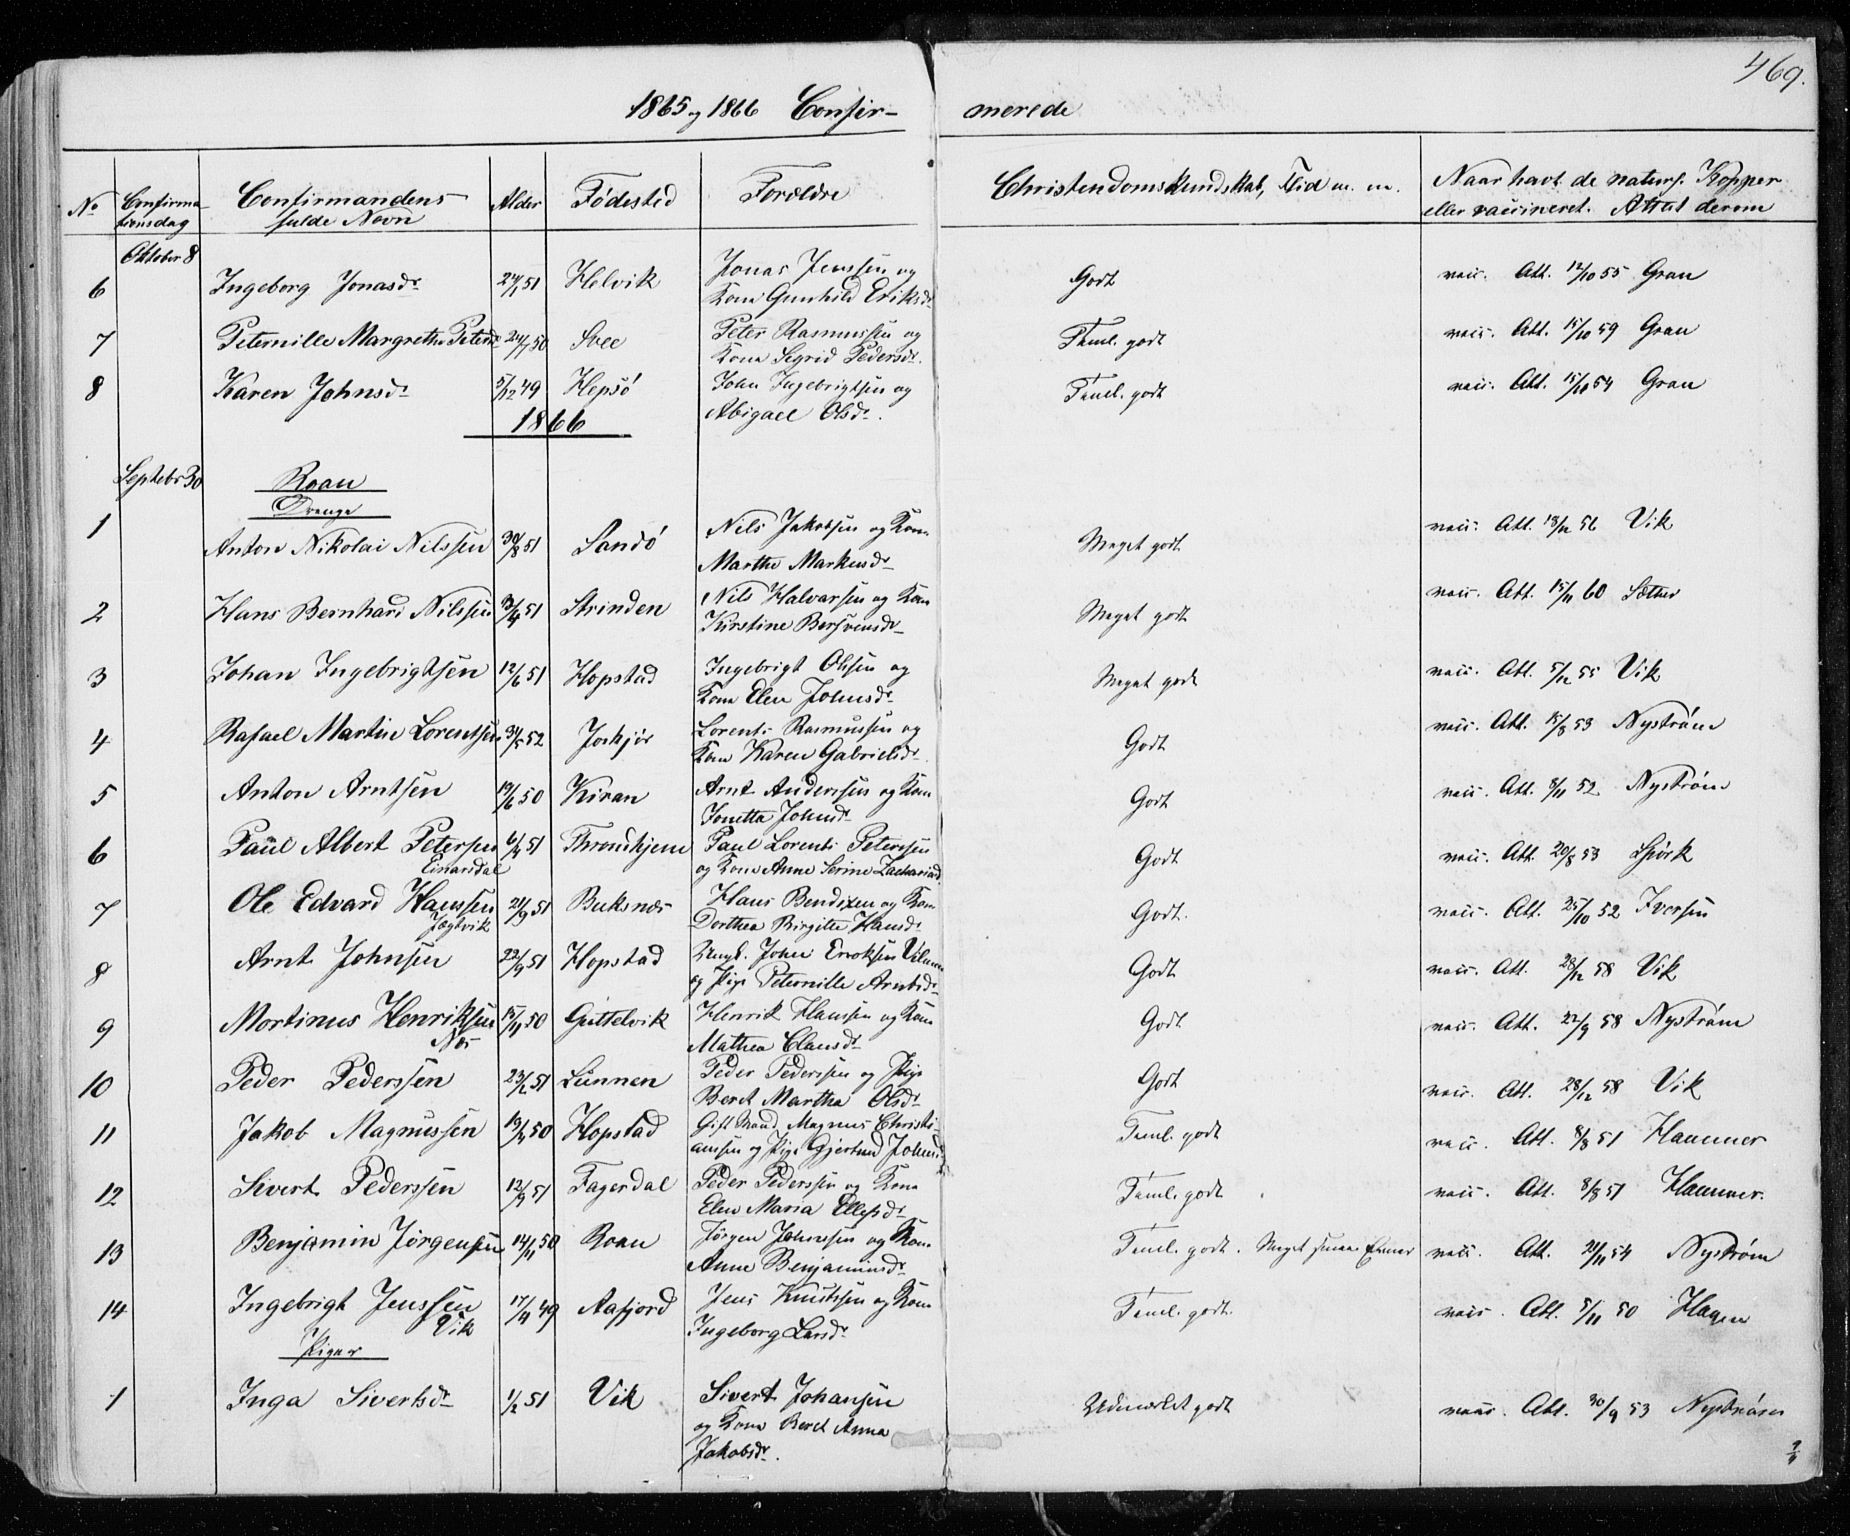 469.
1865 og 1866 Confir- merede
No Confirmationsdag Confirmandens fulde Navn Alder Fødested Forældre Christendomskundskab, Flid m. m. Naar havt de naturl. Kopper eller vaccineret. Attest derom
Oktober 8
6 Ingeborg Jonasdr 24/1 51 Helvik Jonas Jenssen og Kone Gunhild Eriksdr Godt vacc. Att. 12/10 55 Gran
7 Peternille Margrethe Petersdr 24/7 50 Peter Rasmussen og Kone Sigrid Pedersdr. Teml. godt vacc. Att. 15/10 59 Gran
8 Karen Johnsdr 5/12 49 Hepsö John Ingebrigtsen og Abigael Olsdr. Teml. godt vacc. Att. 15/10 54 Gran
1866
Septebr 30 Roan
Drenge
1 Anton Nikolai Nilssen 30/8 51 Sandö Nils Jakobsen og Kone Martha Markusdr Meget godt vacc. Att. 18/12 56 Vik
2 Hans Bernhard Nilssen 3/4 51 Strinden Nils Halvarsen og Kone Kirstine Bersvensdr Meget godt vacc. Att. 15/11 60 Sæther
3 Johan Ingebrigtsen 12/6 51 Hopstad Ingebrigt Olsen og Kone Elen Johnsdr Meget godt vacc. Att. 5/12 55 Vik
4 Rafael Martin Lorentsen 31/5 52 Lorents Rasmussen og Kone Karen Gabrielsdr. Godt vacc. Att. 15/8 53 Nyström
5 Anton Arntsen 19/6 50 Kiran Arnt Anderssen og Kone Jonetta Johnsdr Godt vacc. Att. 8/11 52 Nyström
6 Paul Albert Peterssen Einarsdal 6/4 51 Throndhjem Paul Lorents Peterssen og Kone Anne Serine Zachariasd. Godt vacc. Att. 20/8 53 Spörk
7 Ole Edvard Hanssen Jægtvik 21/9 51 Buksnæs Hans Bendixen og Kone Dorthea Birgitte Hansdr Godt. vacc. Att. 25/10 52 Iversen
8 Arnt Johnsen 22/9 51 Hopstad Ungk. John og Pige Peternille Arntsdr Godt vacc. Att. 28/12 58 Vik
9 Mortinus Henriksen Næs 15/11 50 Guttelvik Henrik Hansen og Kone Mathea Clausdr Godt vacc. Att. 22/9 58 Nyström
10 Peder Pederssen 23/2 51 Sumnen Peder Pederssen og Pige Beret Martha Olsdr Godt vacc. Att. 28/12 58 Vik
11 Jakob Magnussen 19/4 50 Hopstad Gift Mand Magnus Christiansen og Pige Gjertrud Johnsdr Teml. godt vacc. Att. 8/8 51 Hammer
12 Sivert Pederssen 12/9 51 Fagerdal Peder Pederssen og Kone Elen Maria Ellefsdr Teml. godt vacc. Att. 8/8 51 Hammer.
13 Benjamin Jörgensen 14/11 50 Roan Jörgen Johnsen og Kone Anne Benjaminsdr Teml. godt. Meget smaae Evner vacc. Att. 21/11 54 Nyström
14 Ingebrigt Jenssen Vik 17/4 49 Aafjord Jens Knutssen og Kone Ingeborg Larsdr Teml. godt. vacc. Att. 5/11 50 Hagen
Piger
1 Inga Sivertsdr 1/2 51 Vik Sivert Johansen og Kone Beret Anna Jakobsdr. Udmærket godt vacc. Att. 30/9 53 Nyström